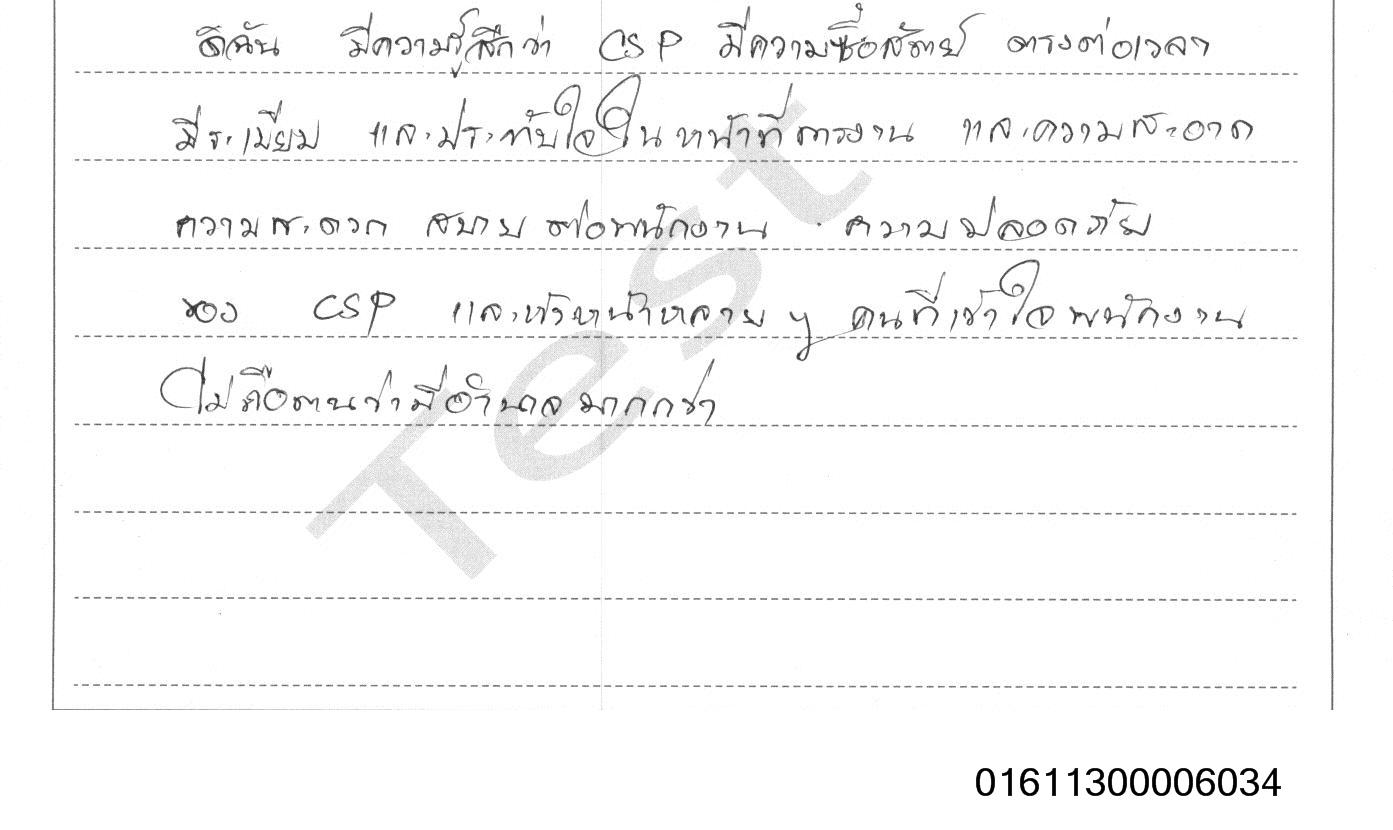 ดิฉัน มีความรู้สึกว่า CSP มีความซื่อสัตย์ ตรงต่อเวลา
มีระเบียบ และประทับใจในหน้าที่การงาน และความสะอาด
ความสะดวก สบาย ต่อพนักงาน . ความปลอดภัย
ของ CSP และหัวหน้าหลาย ๆ คนที่เข้าใจพนักงาน
ไม่ถือตนว่ามีอำนาจมากกว่า
Test
01611300006034